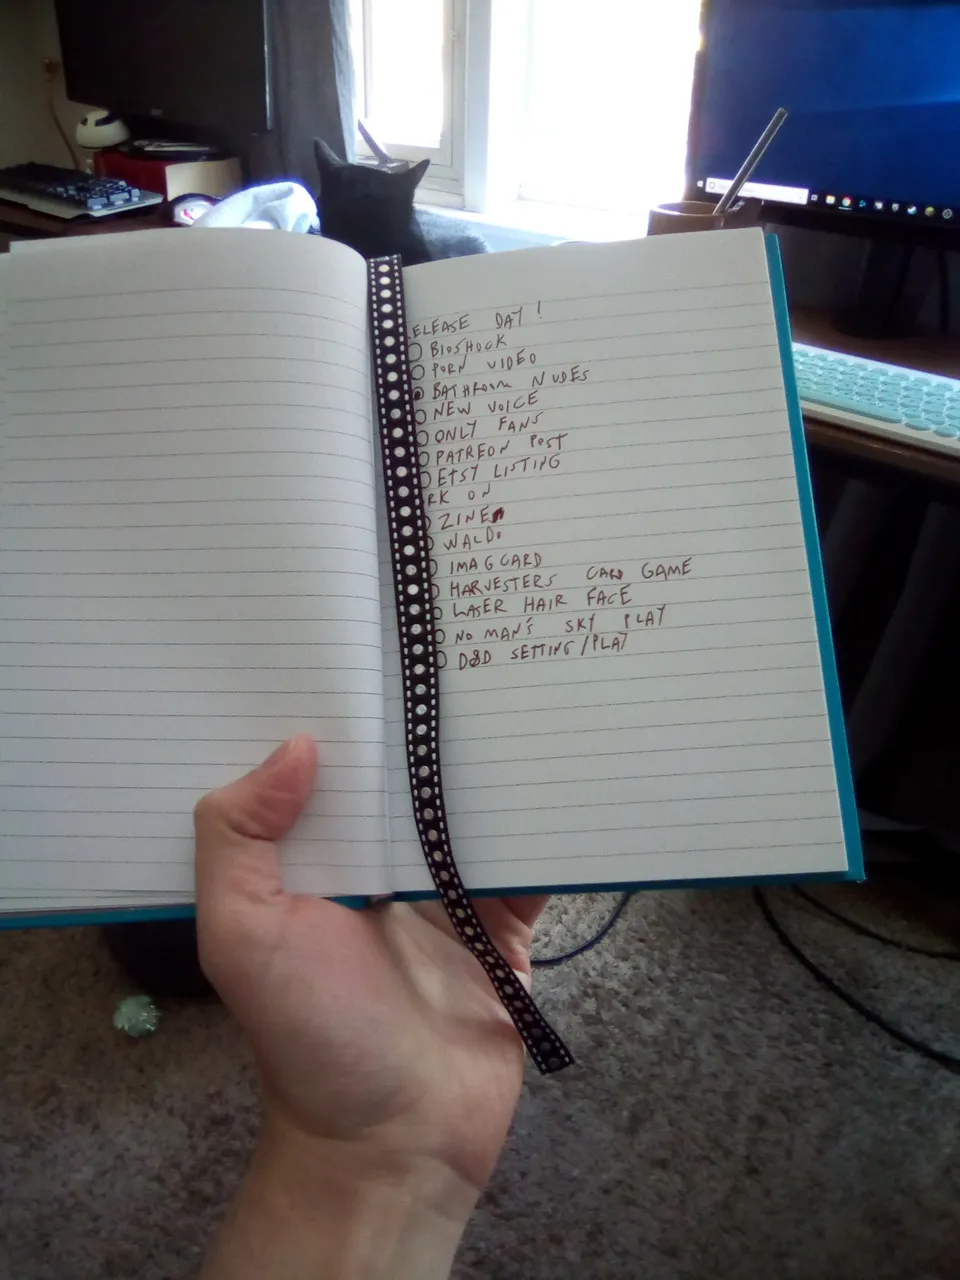 ELEASE DAY!
BIOSHOCK
PORN VIDEO
BATHROOM NUDES
NEW VOICE
ONLY FANS
PATREON POST
ETSY LISTING
RK ON
ZINE
WALDO
IMAGCARD
HARVESTERS CARD GAME
LASER HAIR FACE
NO MAN'S SKY PLAY
D&D SETTING/PLAY